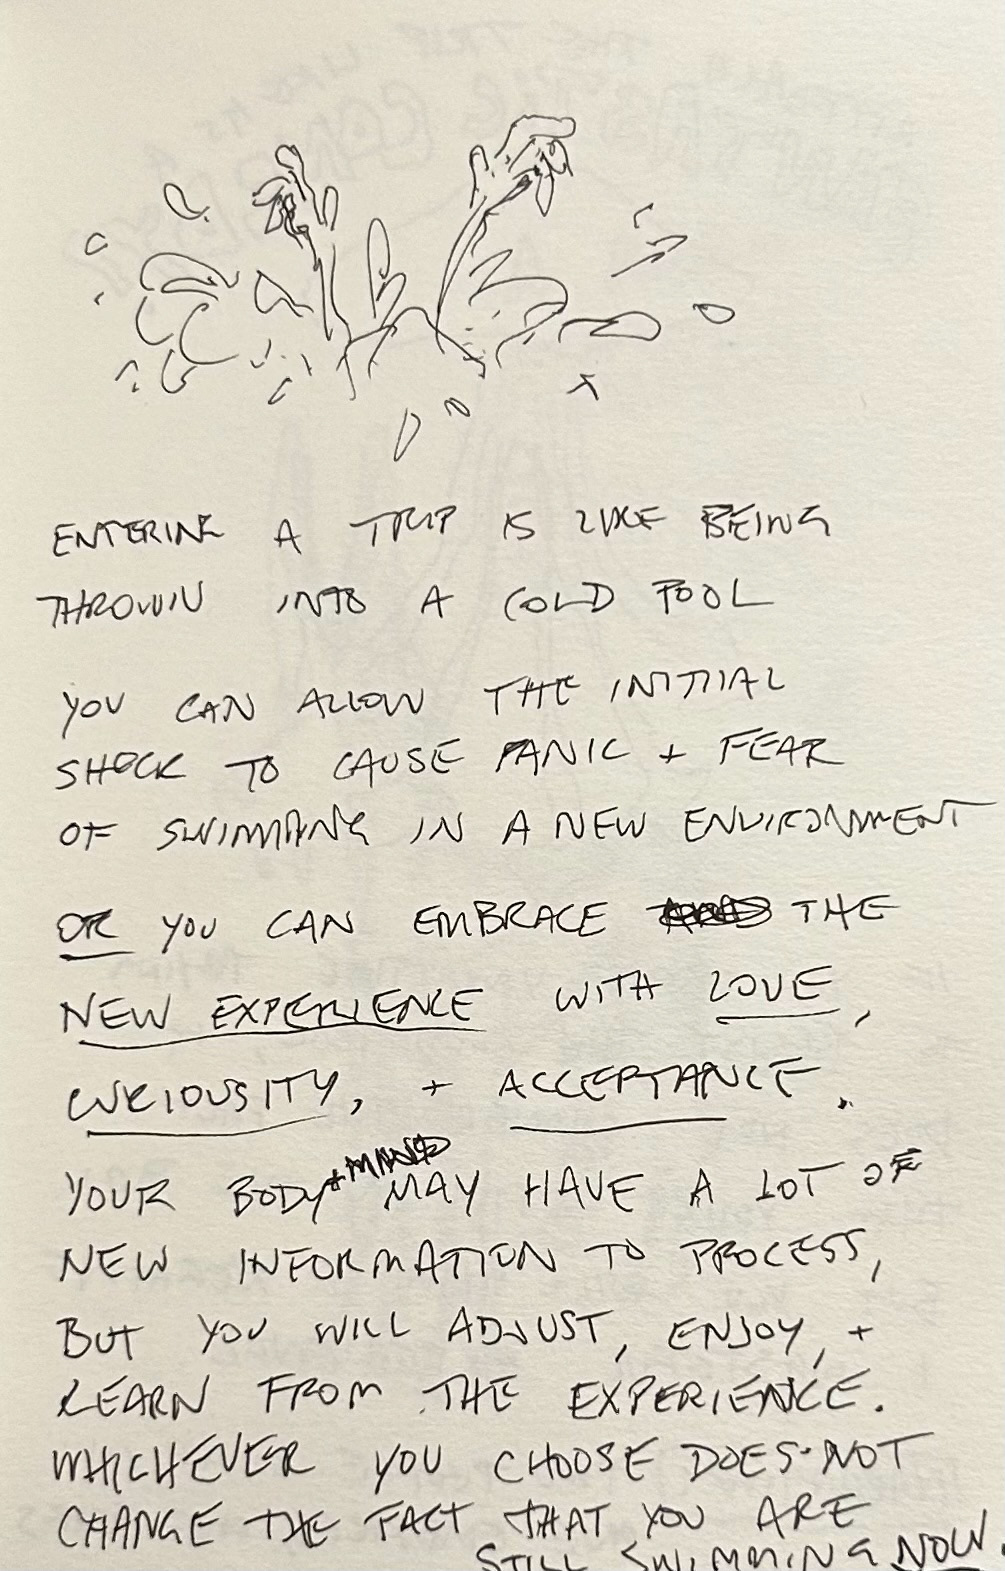 ENTERING A TRIP IS LIKE BEING
THROWN INTO A COLD POOL
YOU CAN ALLOW THE INITIAL
SHOCK TO CAUSE PANIC + FEAR
OF SWIMMING IN A NEW ENVIRONMENT
OR YOU CAN EMBRACE THE
NEW EXPERIENCE WITH LOVE,
CURIOUSITY, + ACCEPTANCE.
YOUR BODY + MIND MAY HAVE A LOT OF
NEW INFORMATION TO PROCESS,
BUT YOU WILL ADJUST, ENJOY, +
LEARN FROM THE EXPERIENCE.
WHICHEVER YOU CHOOSE DOES NOT
CHANGE THE FACT THAT YOU ARE
STILL SWIMMING NOW.